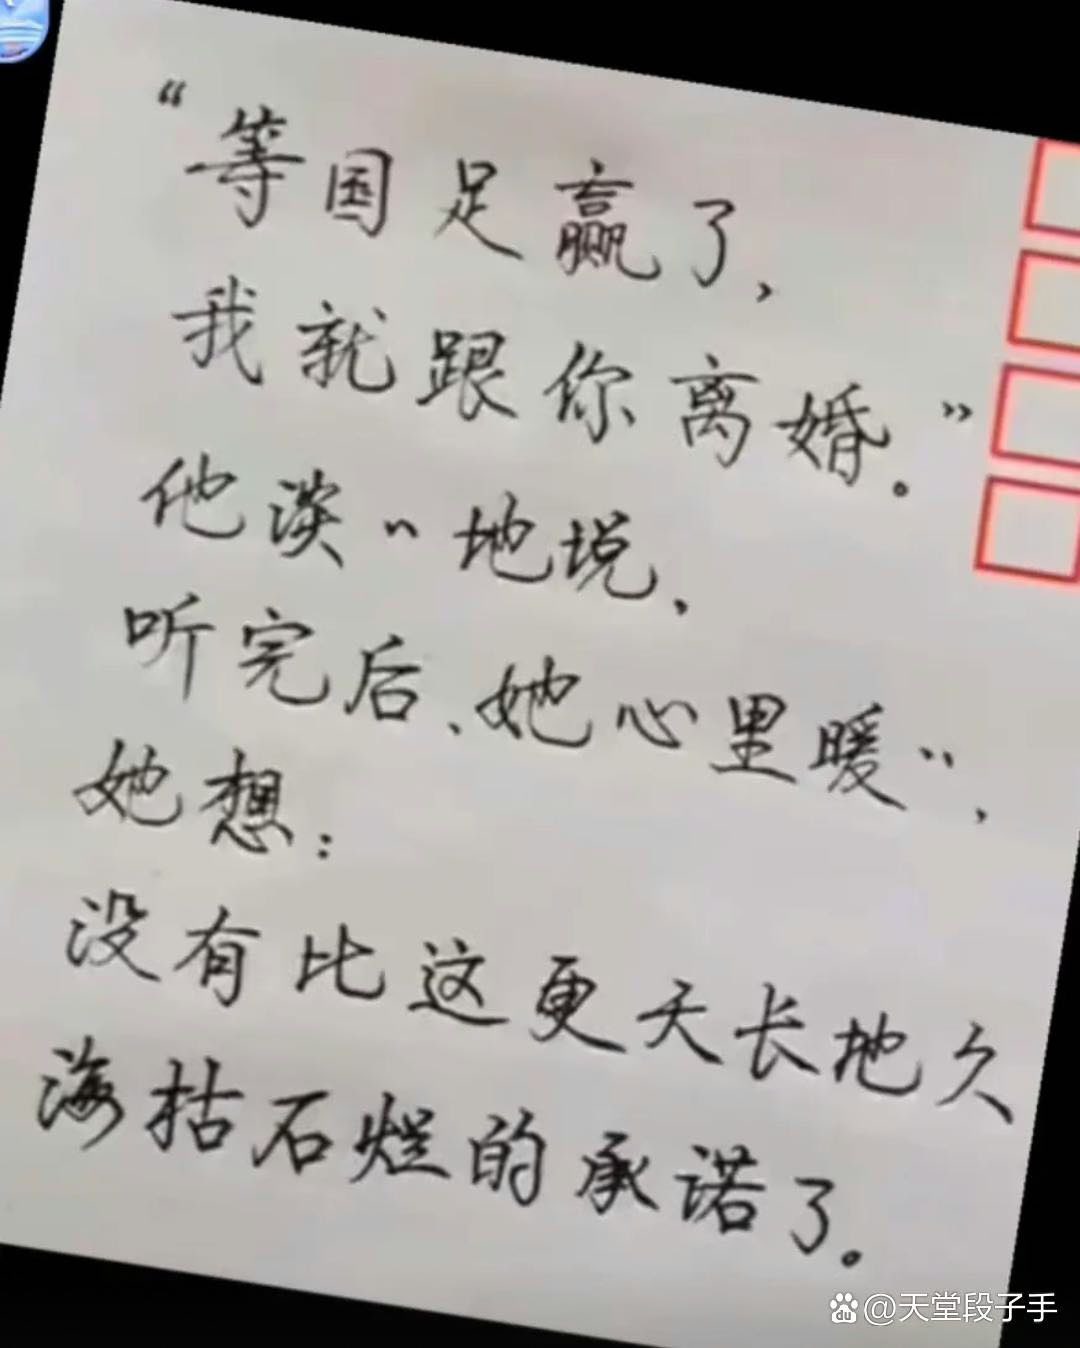 “等国足赢了，
我就跟你离婚。”
他淡〃地说，
听完后、她心里暖〃，
她想：
没有比这更天长地久
海枯石烂的承诺了。
@天堂段子手